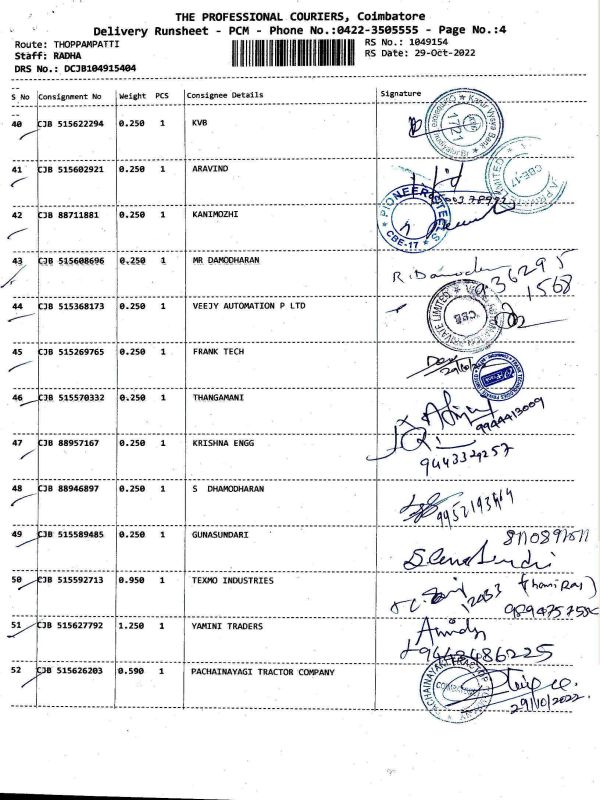 THE PROFESSIONAL COURIERS, Coimbatore
Delivery Runsheet - PCM - Phone No.:0422-3505555 - Page No.:4
Route: THOPPAMPATTI
RS No.: 1049154
Staff: RADHA
RS Date: 29-Oct-2022
DRS No.: DCJB104915404
S No Consignment No Weight PCS Consignee Details Signature
40 CJB 515622294 0.250 1 KVB
1721
41 CJB 515602921 0.250 1 ARAVIND
CBE-17
42 CJB 88711881 0.250 1 KANIMOZHI
PIONEER
CBE-17
43 CJB 515608696 0.250 1 MR DAMODHARAN
36295
1568
44 CJB 515368173 0.250 1 VEEJY AUTOMATION P LTD
PRIVATE LIMITED
CBE
45 CJB 515269765 0.250 1 FRANK TECH
46 CJB 515570332 0.250 1 THANGAMANI
9944413009
47 CJB 88957167 0.250 1 KRISHNA ENGG
9443329257
48 CJB 88946897 0.250 1 S DHAMODHARAN
49 CJB 515589485 0.250 1 GUNASUNDARI
50 CJB 515592713 0.950 1 TEXMO INDUSTRIES
51 CJB 515627792 1.250 1 YAMINI TRADERS
52 CJB 515626203 0.590 1 PACHAINAYAGI TRACTOR COMPANY
29/10/2022